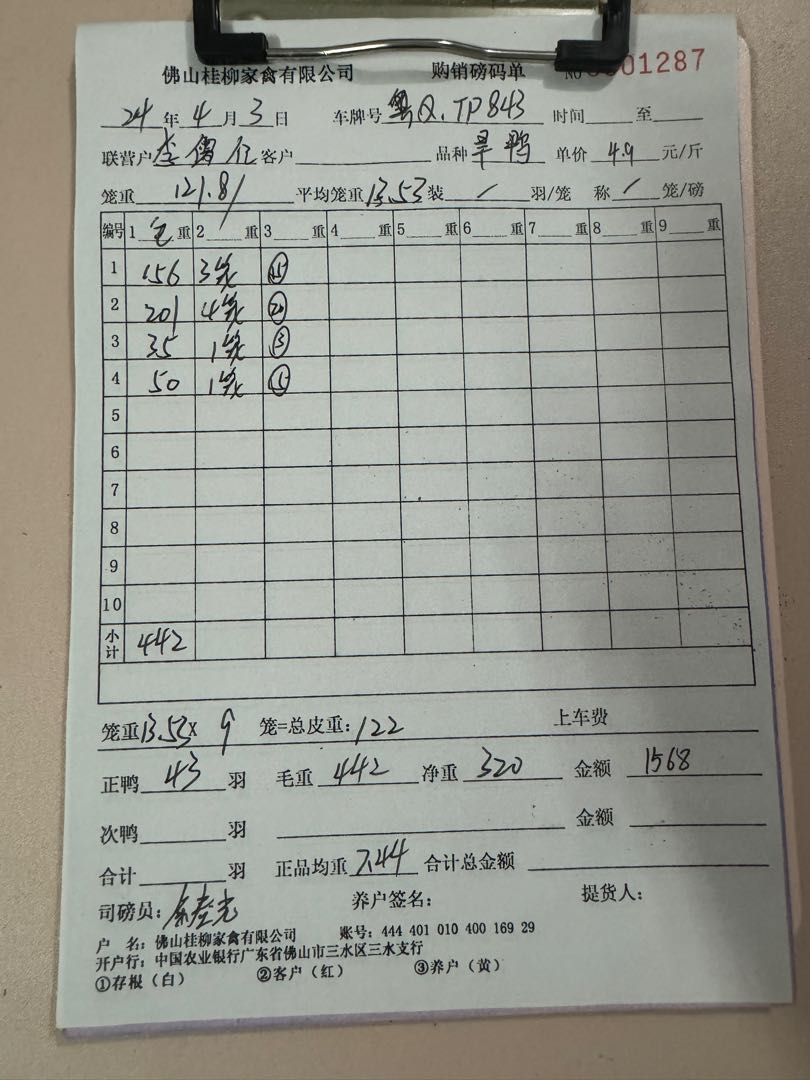 佛山桂柳家禽有限公司 购销磅码单 NO 0001287
24年4月3日 车牌号粤Q.TP843 时间 至
联营户李 客户 品种旱鸭 单价4.9元/斤
笼重121.8/ 平均笼重13.53装/羽/笼 称/笼/磅
编号 1毛重 2 重 3 重 4 重 5 重 6 重 7 重 8 重 9 重
1 156 3笼 ⑮
2 201 4笼 ⑳
3 35 1笼 ③
4 50 1笼 ⑤
5
6
7
8
9
10
小计 442
笼重13.53X 9 笼=总皮重:122 上车费
正鸭43羽 毛重442 净重320 金额1568
次鸭 羽 金额
合计 羽 正品均重7.44 合计总金额
司磅员: 养户签名: 提货人:
户 名:佛山桂柳家禽有限公司 账号:444 401 010 400 169 29
开户行:中国农业银行广东省佛山市三水区三水支行
①存根(白) ②客户(红) ③养户(黄)